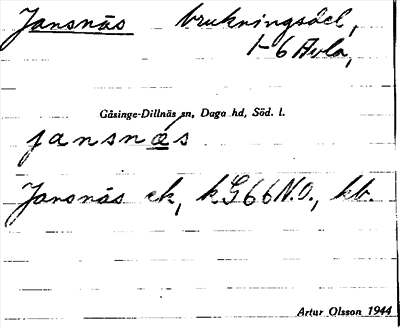 Jansnäs brukningsdel,
1-6 Avla,
Gåsinge-Dillnäs sn, Daga hd, Söd. l.
jansnäs
Jansnäs ek, kG66N.O., kb.
Artur Olsson 1944